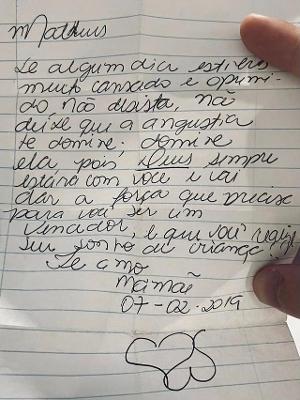 Matheus
Se algum dia estiver
muito cansado e oprimi-
do não desista, não
deixe que a angustia
te domine, domine
ela pois, Deus sempre
estará com você e vai
dar a força que precisa
para você ser um
vencedor, e que você
seu sonho de criança!
Te amo
Mamãe
07-02-2019